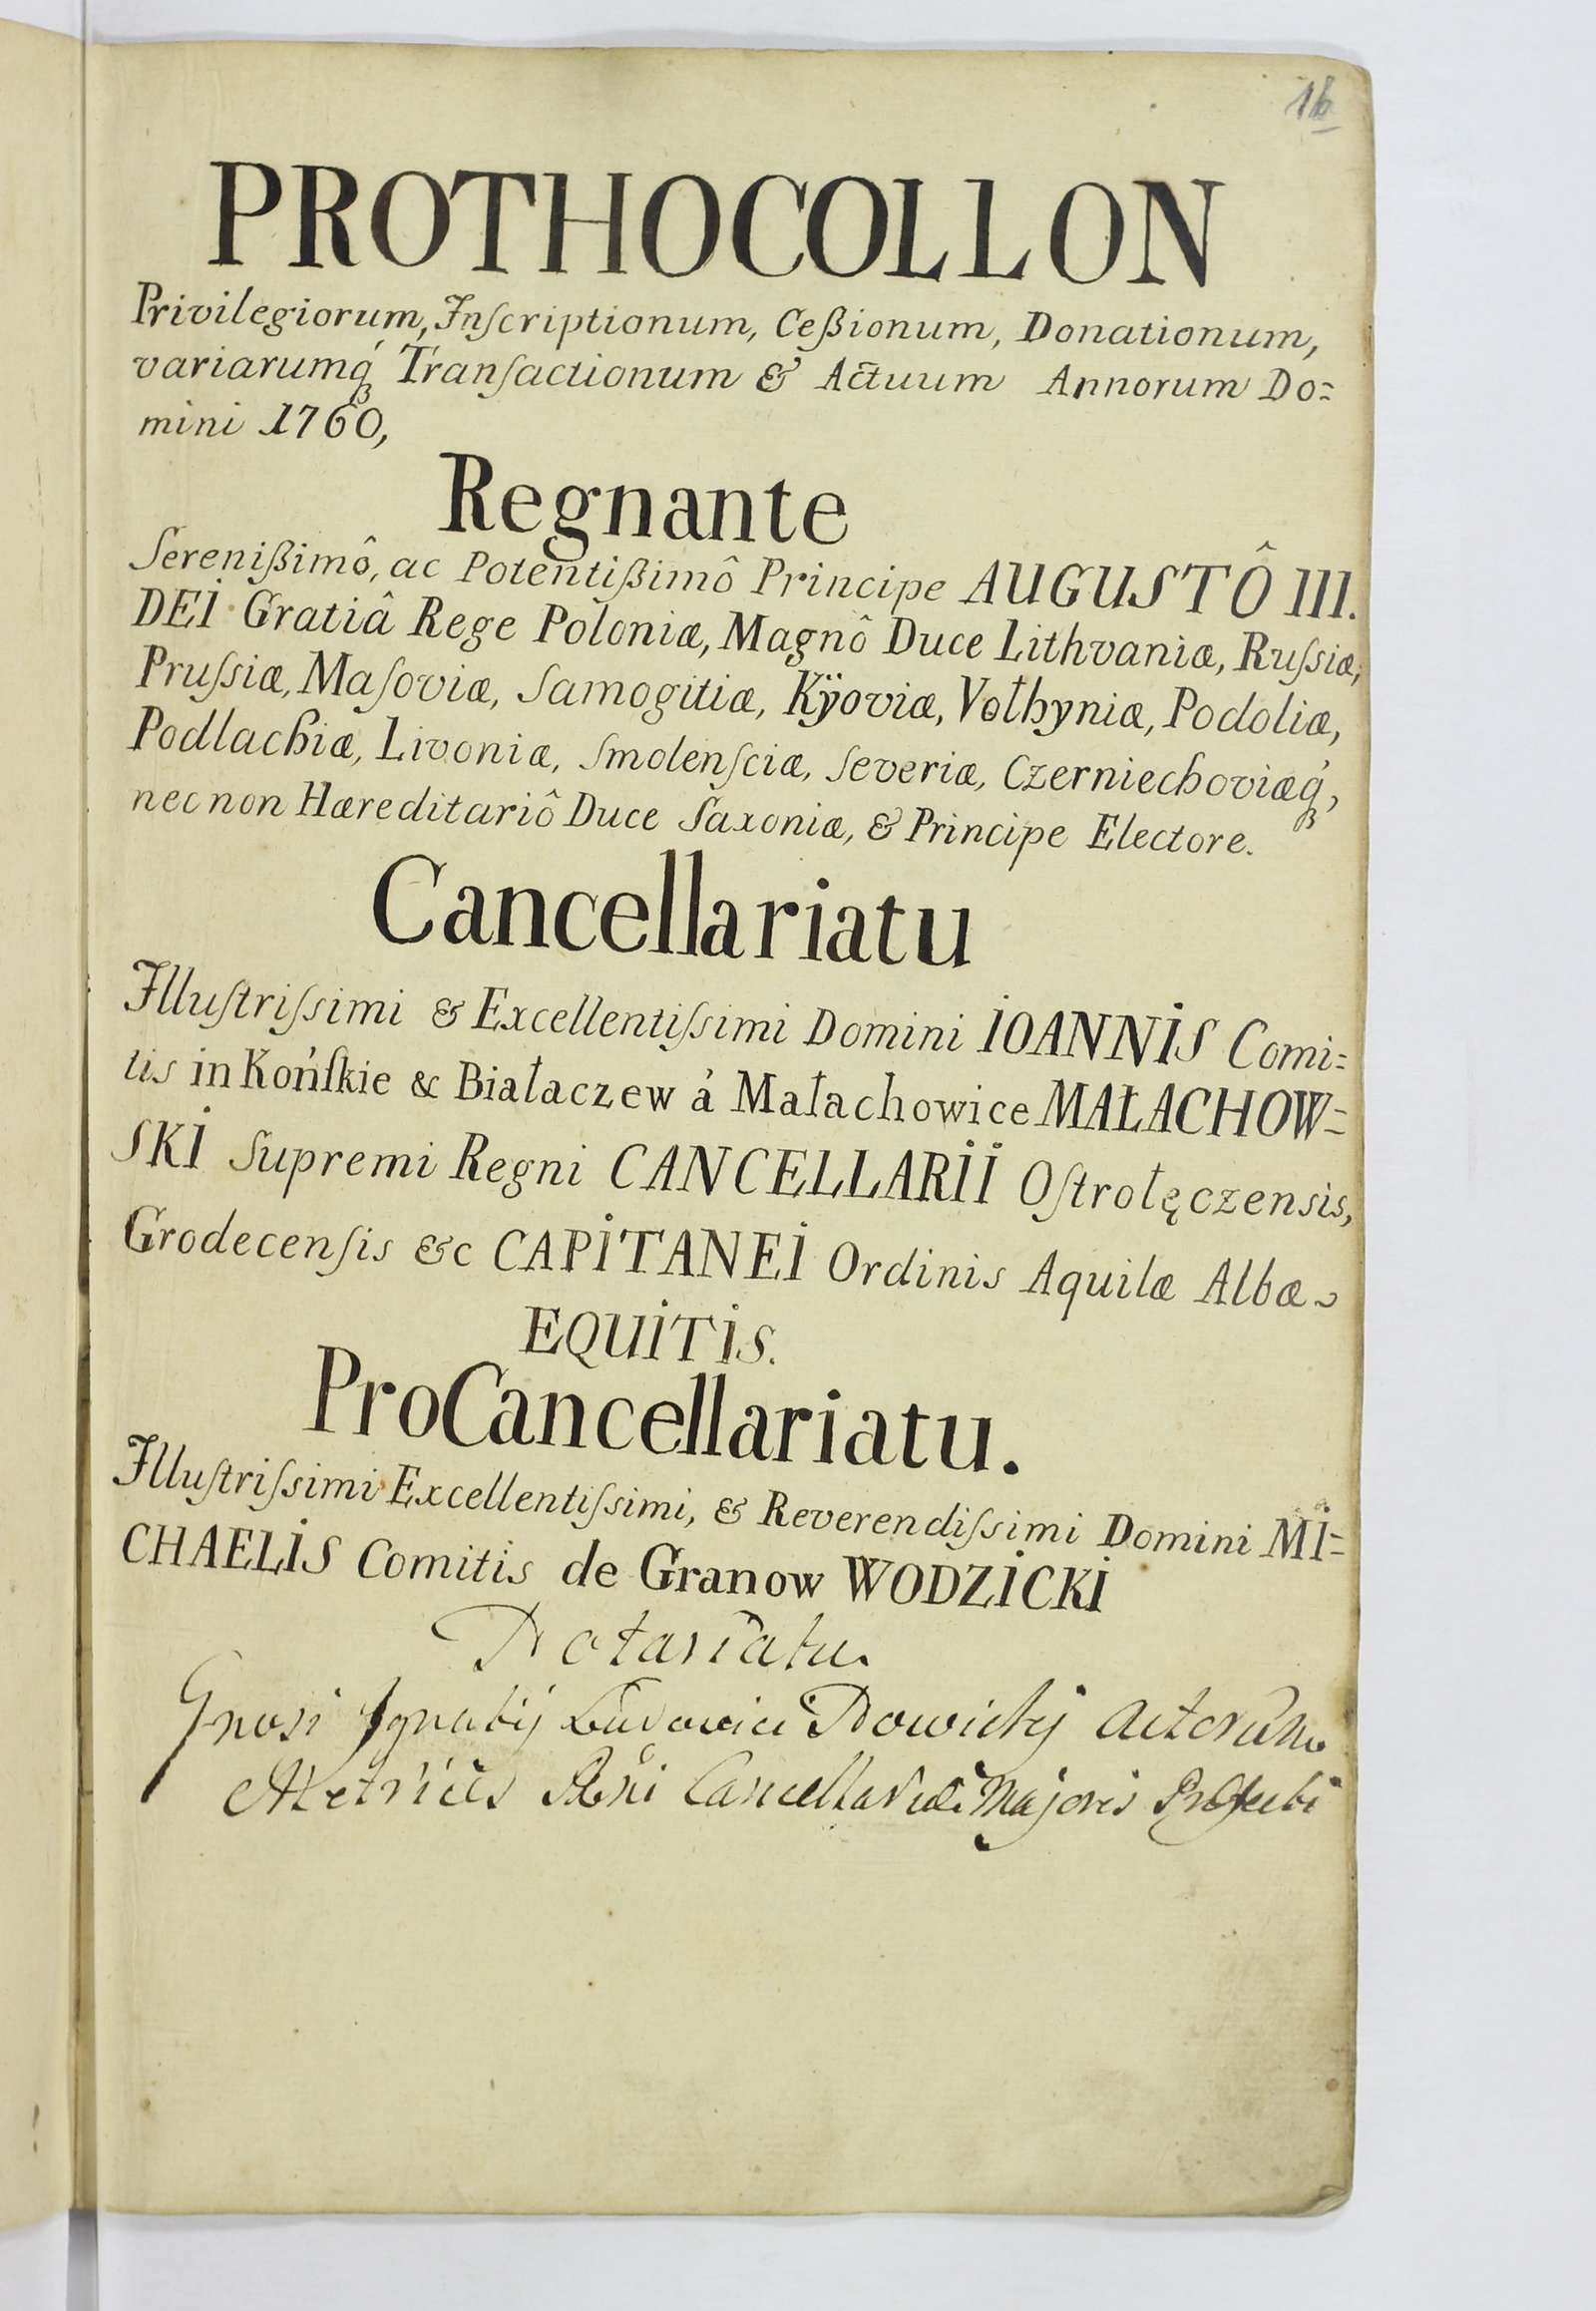 16
PROTHOCOLLON
Privilegiorum, Inſcriptionum, Ceßionum, Donationum,
variarumq́ꝫ Tranſactionum & Actuum Annorum Do=
mini 1760,
Regnante
Sereniſßimô, ac Potentißimô Principe AUGUSTÔ III.
DEI Gratiâ Rege Poloniæ, Magnô Duce Lithvaniæ, Ruſsiæ,
Pruſsiæ, Maſoviæ, Samogitiæ, Kÿoviæ, Vołhyniæ, Podoliæ,
Podlachiæ, Livoniæ, Smolenſciæ, Severiæ, Czerniechoviæq́ꝫ,
nec non Hæreditariô Duce Saxoniæ, & Principe Electore.
Cancellariatu
Illuſtriſsimi & Excellentiſsimi Domini IOANNIS Comi=
tis in Końſkie & Białaczew á Małachowice MAŁACHOW=
SKI Supremi Regni CANCELLARII Oſtrołęczensis,
Grodecenſis &c CAPITANEI Ordinis Aquilæ Albæ
EQUITIS.
ProCancellariatu.
Illuſtriſsimi Excellentiſsimi, & Reverendiſsimi Domini MI=
CHAELIS Comitis de Granow WODZICKI
Notariatu.
Gnosi Ignatij Ludovici Nowicky Actorum
Metrices Rni Cancellariæ Majoris Præfecti